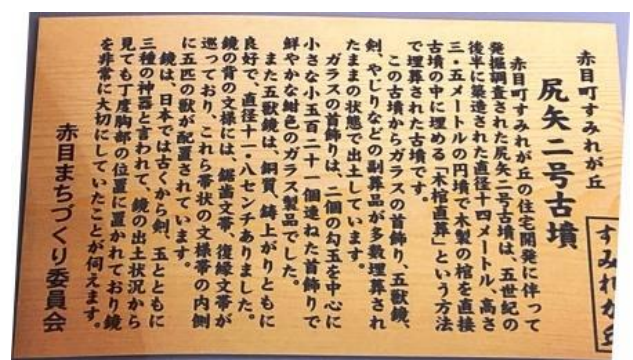 赤目町すみれが丘
尻矢二号古墳
赤目町すみれが丘の住宅開発に伴って
発掘調査された尻矢二号古墳は、五世紀の
後半に築造された直径十四メートル、高さ
三・五メートルの円墳で木製の棺を直接
古墳の中に埋める「木棺直葬」という方法
で埋葬された古墳です。
この古墳からガラスの首飾り、五獣鏡、
剣、やじりなどの副葬品が多数埋葬され
たままの状態で出土しています。
ガラスの首飾りは、二個の勾玉を中心に
小さな小玉百二十一個連ねた首飾りで
鮮やかな紺色のガラス製品でした。
また五獣鏡は、銅質、鋳上がりともに
良好で、直径十一・八センチありました。
鏡の背の文様には、鋸歯文帯、復縁文帯が
巡っており、これら帯状の文様帯の内側
に五匹の獣が配置されています。
鏡は、日本では古くから剣、玉とともに
三種の神器と言われて、鏡の出土状況から
見ても丁度胸部の位置に置かれており鏡
を非常に大切にしていたことが伺えます。
赤目まちづくり委員会
すみれが丘